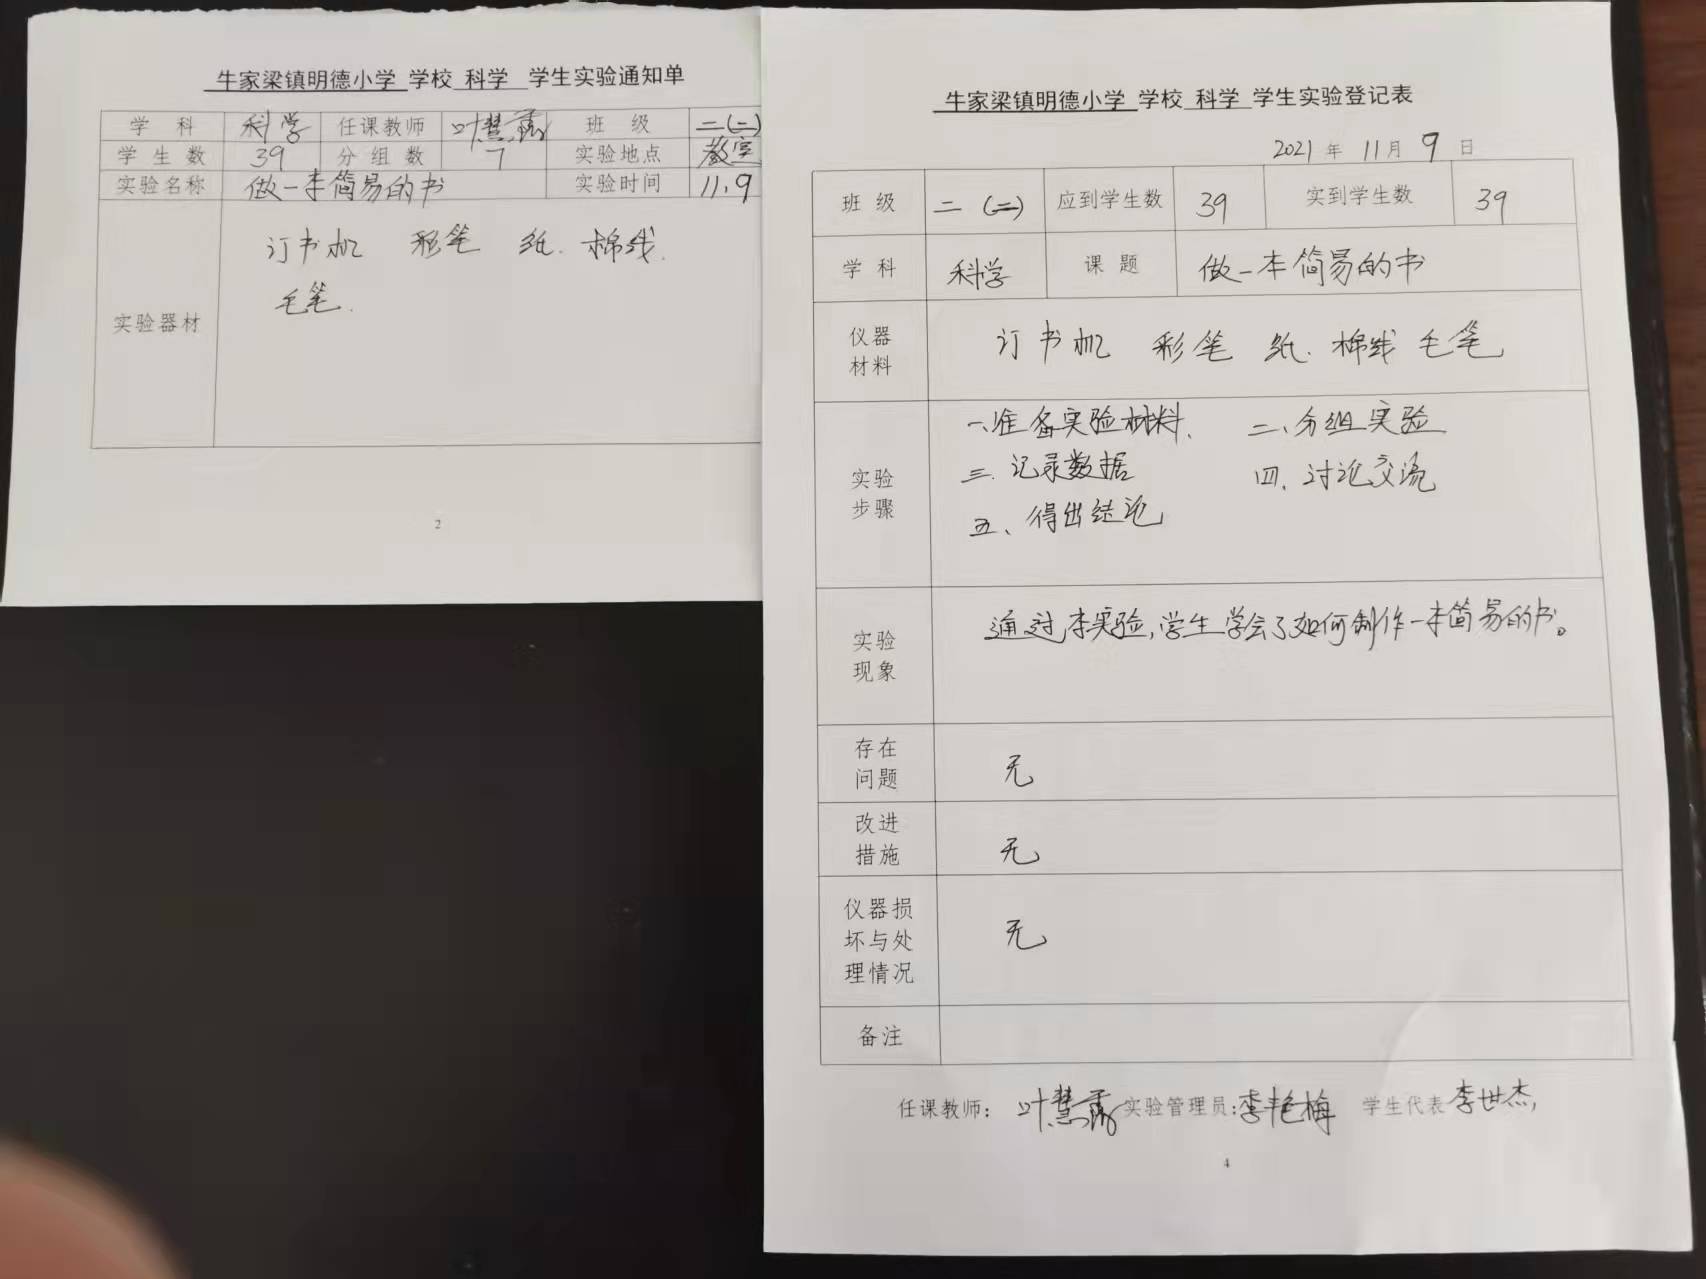 牛家梁镇明德小学 学校 科学 学生实验通知单
学 科 科学 任课教师 叶慧露 班 级 二(二)
学 生 数 39 分 组 数 7 实验地点 教室
实验名称 做一本简易的书 实验时间 11.9
实验器材
订书机 彩笔 纸. 棉线.
毛笔.
2
牛家梁镇明德小学 学校 科学 学生实验登记表
2021 年 11 月 9 日
班 级 二 (二) 应到学生数 39 实到学生数 39
学 科 科学 课 题 做一本简易的书
仪器
材料
订书机 彩笔 纸. 棉线 毛笔
实验
步骤
一、准备实验材料. 二、分组实验
三. 记录数据 四. 讨论交流
五、得出结论
实验
现象
通过本实验,学生学会了如何制作一本简易的书。
存在
问题
无
改进
措施
无
仪器损
坏与处
理情况
无
备注
任课教师： 叶慧露 实验管理员:李艳梅 学生代表 李世杰
4